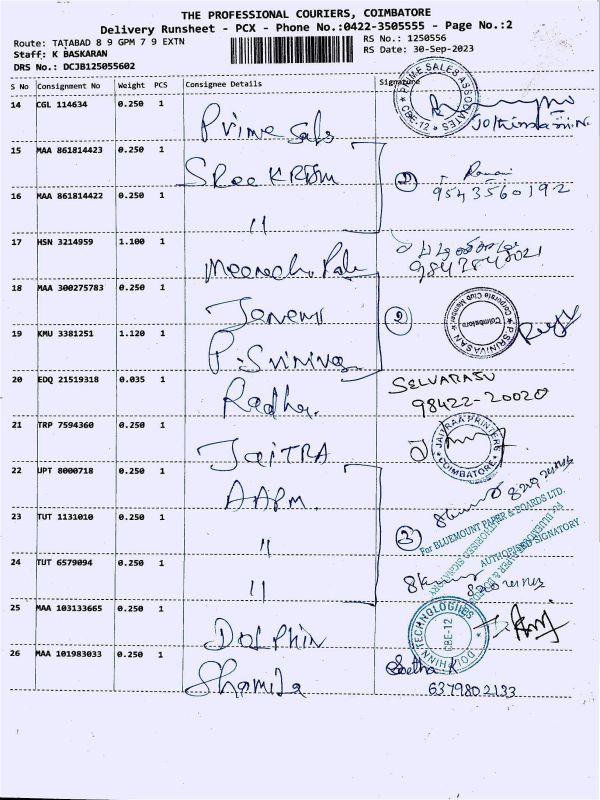 THE PROFESSIONAL COURIERS, COIMBATORE
Delivery Runsheet - PCX - Phone No.:0422-3505555 - Page No.:2
Route: TATABAD 8 9 GPM 7 9 EXTN
RS No.: 1250556
Staff: K BASKARAN
RS Date: 30-Sep-2023
DRS No.: DCJB125055602
S No Consignment No Weight PCS Consignee Details Signature
14 CGL 114634 0.250 1
Prime Sales
PRIME SALES ASSOCIATES
CBE-12
15 MAA 861814423 0.250 1
Sree
9543560192
16 MAA 861814422 0.250 1
"
17 HSN 3214959 1.100 1
18 MAA 300275783 0.250 1
2
P. SRINIVASAN
Coimbatore
Corporate Club Member
19 KMU 3381251 1.120 1
P. Srinivas
20 EDQ 21519318 0.035 1
Radha.
SELVARASU
98422-20020
21 TRP 7594360 0.250 1
JAITRA
JAITRAA PRINTERS
COIMBATORE
22 UPT 8000718 0.250 1
AAPM.
23 TUT 1131010 0.250 1
"
3
For BLUEMOUNT PAPER & BOARDS LTD.
AUTHORISED SIGNATORY
24 TUT 6579094 0.250 1
"
25 MAA 103133665 0.250 1
DOLPHIN
DOLPHINN TECHNOLOGIES
CBE-12
26 MAA 101983033 0.250 1
Sharmila
Seetha K
6379802133